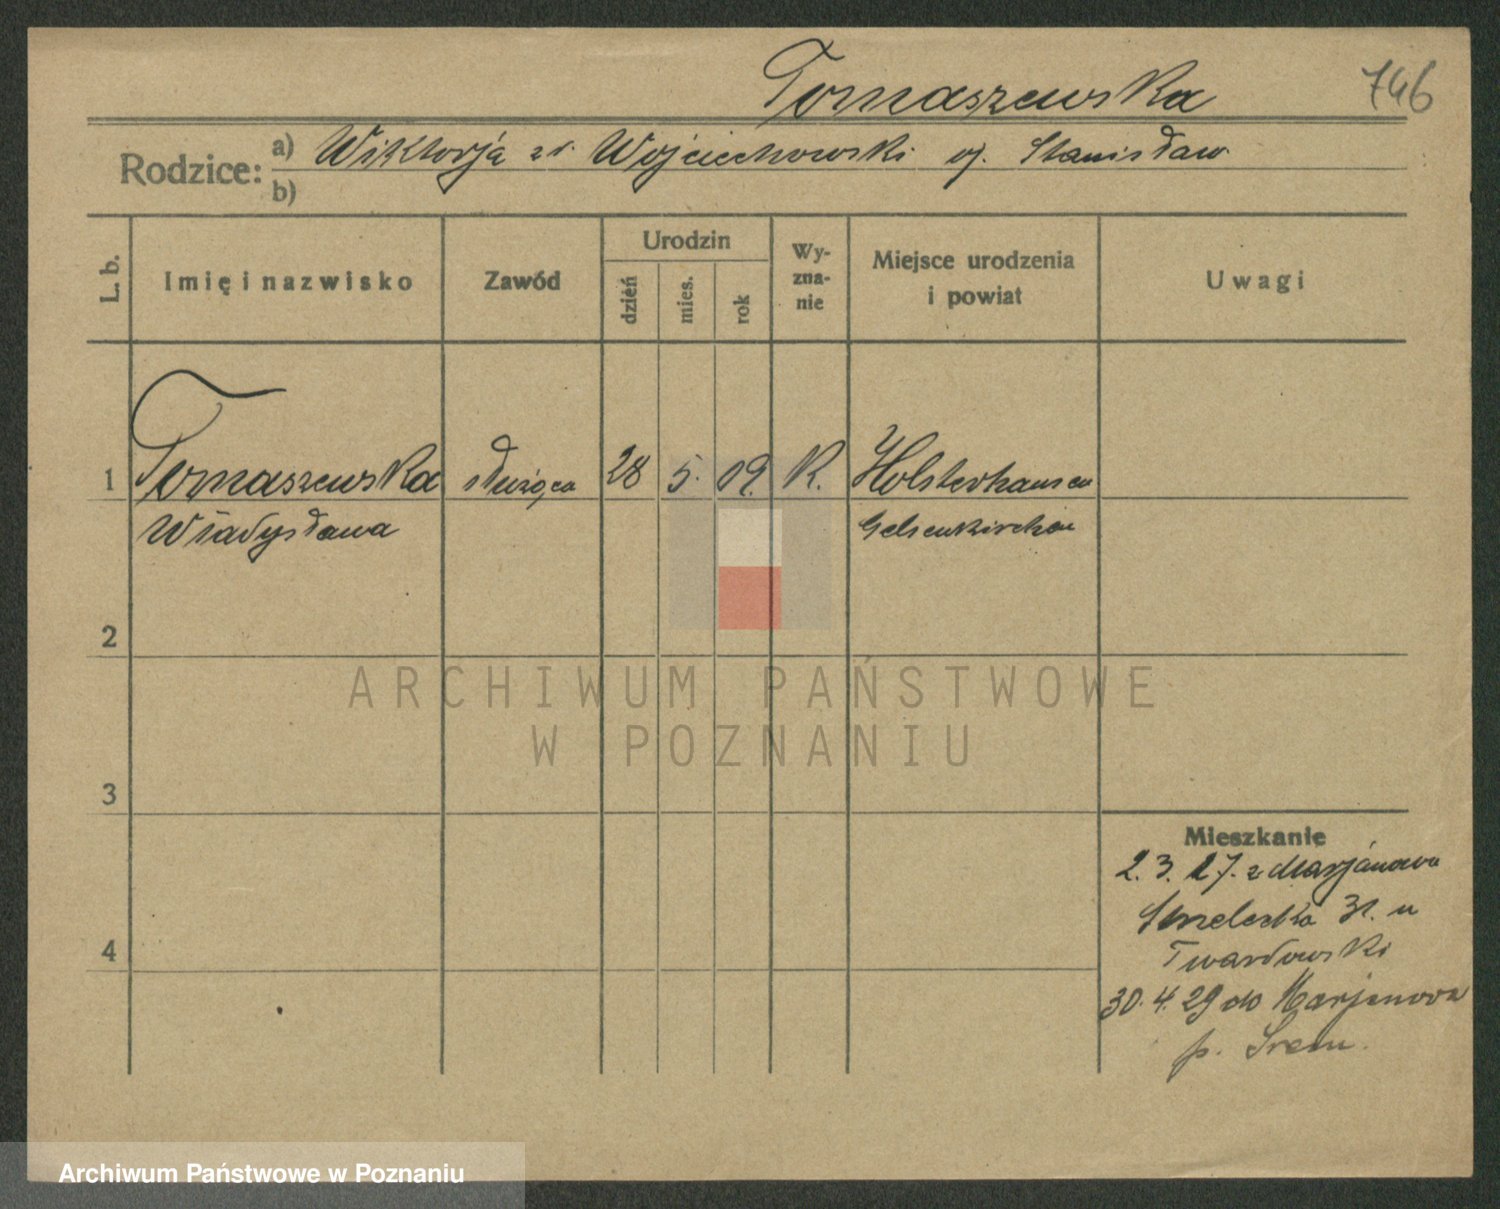 Tomaszewska 746
Rodzice: a) Wiktorja zd. Wojciechowski oj. Stanisław
b)
L. b. Imię i nazwisko Zawód Urodzin dzień mies. rok Wy-zna-nie Miejsce urodzenia i powiat Uwagi
1 Tomaszewska służąca 28 5. 09. K. Holsterhausen
Władysława Gelsenkirchen
2
ARCHIWUM PAŃSTWOWE
W POZNANIU
3
Mieszkanie
2. 3. 27. z Marjanowa
31. u
Twardowski
4
30. 4. 29 do Marjanowa
p. Śrem.
Archiwum Państwowe w Poznaniu